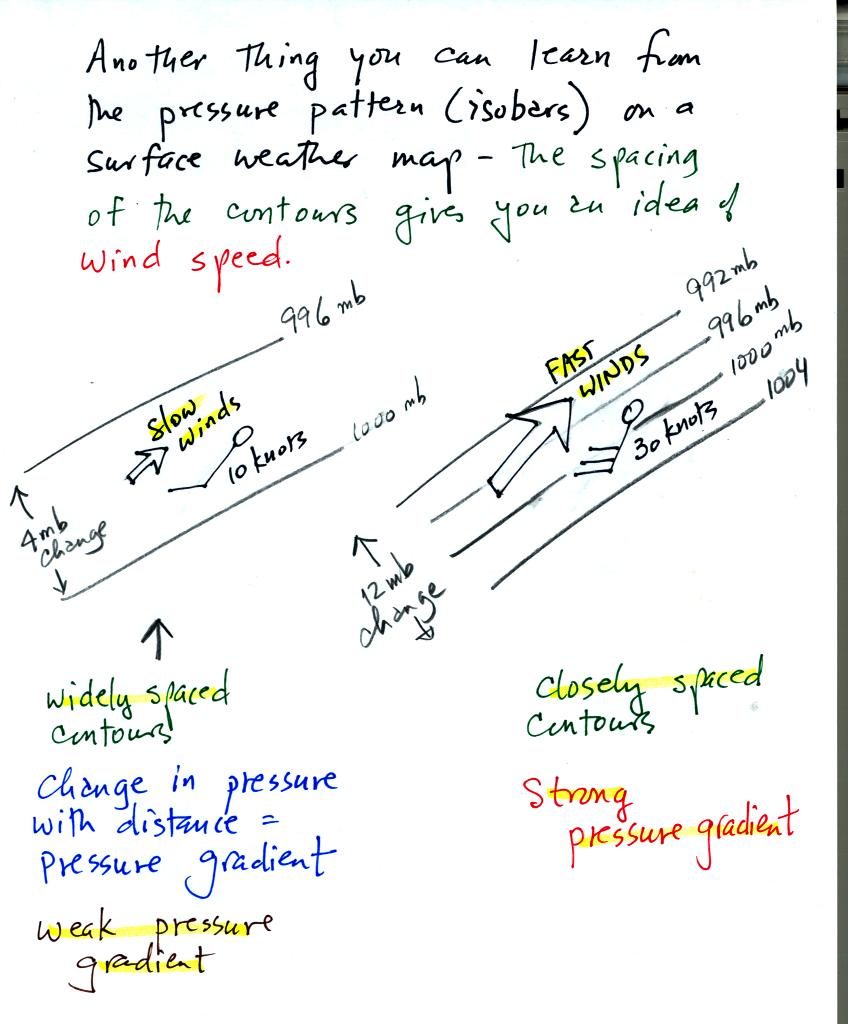 Another thing you can learn from
the pressure pattern (isobars) on a
surface weather map - The spacing
of the contours gives you an idea of
wind speed.
996 mb
Slow
Winds
10 knots
1000 mb
4mb
change
992 mb
996 mb
1000 mb
1004
FAST
WINDS
30 knots
12 mb
change
widely spaced
contours
Change in pressure
with distance =
pressure gradient
weak pressure
gradient
closely spaced
contours
Strong
pressure gradient